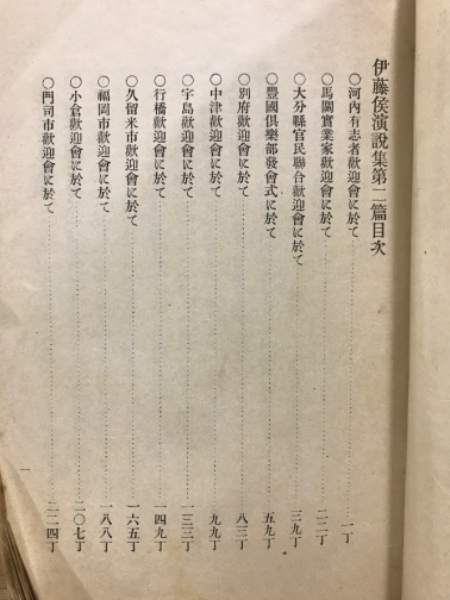 伊藤侯演說集第二篇目次
○河內有志者歡迎會に於て……一丁
○馬關實業家歡迎會に於て……二二丁
○大分縣官民聯合歡迎會に於て……三九丁
○豐國俱樂部發會式に於て……五九丁
○別府歡迎會に於て……八三丁
○中津歡迎會に於て……九九丁
○宇島歡迎會に於て……一三三丁
○行橋歡迎會に於て……一四九丁
○久留米市歡迎會に於て……一六五丁
○福岡市歡迎會に於て……一八八丁
○小倉歡迎會に於て……二〇七丁
○門司市歡迎會に於て……二二四丁
一